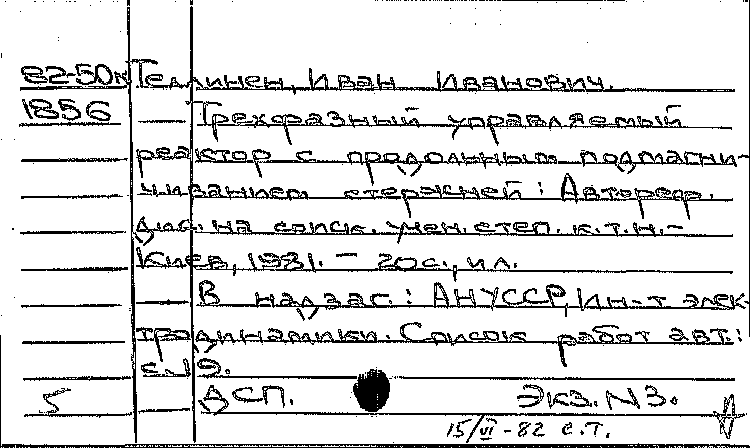 82-50к Теллинен, Иван Иванович.
1856 Трехфазный управляемый
реактор с продольным подмагни-
чиванием стержней: Автореф.
дис. на соиск. учен. степ. к.т.н.-
Киев, 1981. - 20с., ил.
В надзаг.: АН УССР, Ин-т элек-
тродинамики. Список работ авт.:
с. 19.
5 ДСП. Экз. N3.
15/VI-82 с.т.